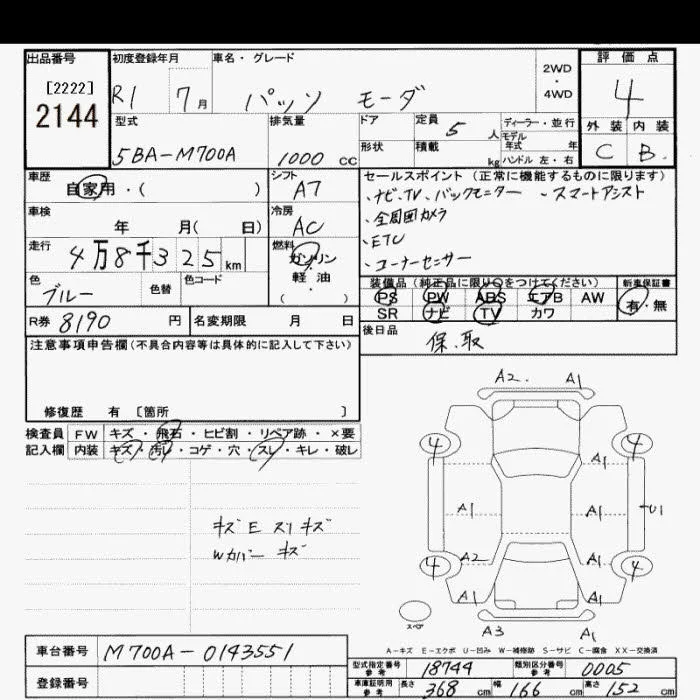 出品番号 初度登録年月 車名・グレード 2WD・4WD 評価点
[2222]
2144
R1 7月 パッソ モーダ 4
型式 排気量 ドア 定員 5人 ディーラー・並行 外装 内装
5BA-M700A 1000cc 形状 積載 kg モデル年式 年 ハンドル 左・右 C B
車歴 自家用・( ) シフト A7 セールスポイント(正常に機能するものに限ります)
、ナビ、TV、バックモニター 、スマートアシスト
、全周囲カメラ
、ETC
、コーナーセンサー
車検 年 月( 日) 冷房 AC
走行 4万8千325km 燃料 ガソリン・軽・油 ( )
色 ブルー 色替 色コード
装備品(純正品に限り○をつけてください) 新車保証書
PS PW ABS エアB AW 有・無
SR ナビ TV カワ
R券 8190円 名変期限 月 日 後日品
保、取
注意事項申告欄(不具合内容等は具体的に記入して下さい)
修復歴 有 〔箇所 〕
検査員 FW キズ・飛石・ヒビ割・リペア跡・×要
記入欄 内装 キズ・汚レ・コゲ・穴・スレ・キレ・破レ
キズE スリキズ
Wカバー キズ
A2 A1
4 4
A1
A1 A1 U1
A2 A1
4 4
A1 A1
A3 A1
スペア
A-キズ E-エクボ U-凹み W-補修跡 S-サビ C-腐食 XX-交換済
車台番号 M700A-0143551
登録番号
型式指定番号 参考 18744 類別区分番号 参考 0005
車庫証明用 参考 長さ 368cm 幅 166cm 高さ 152cm